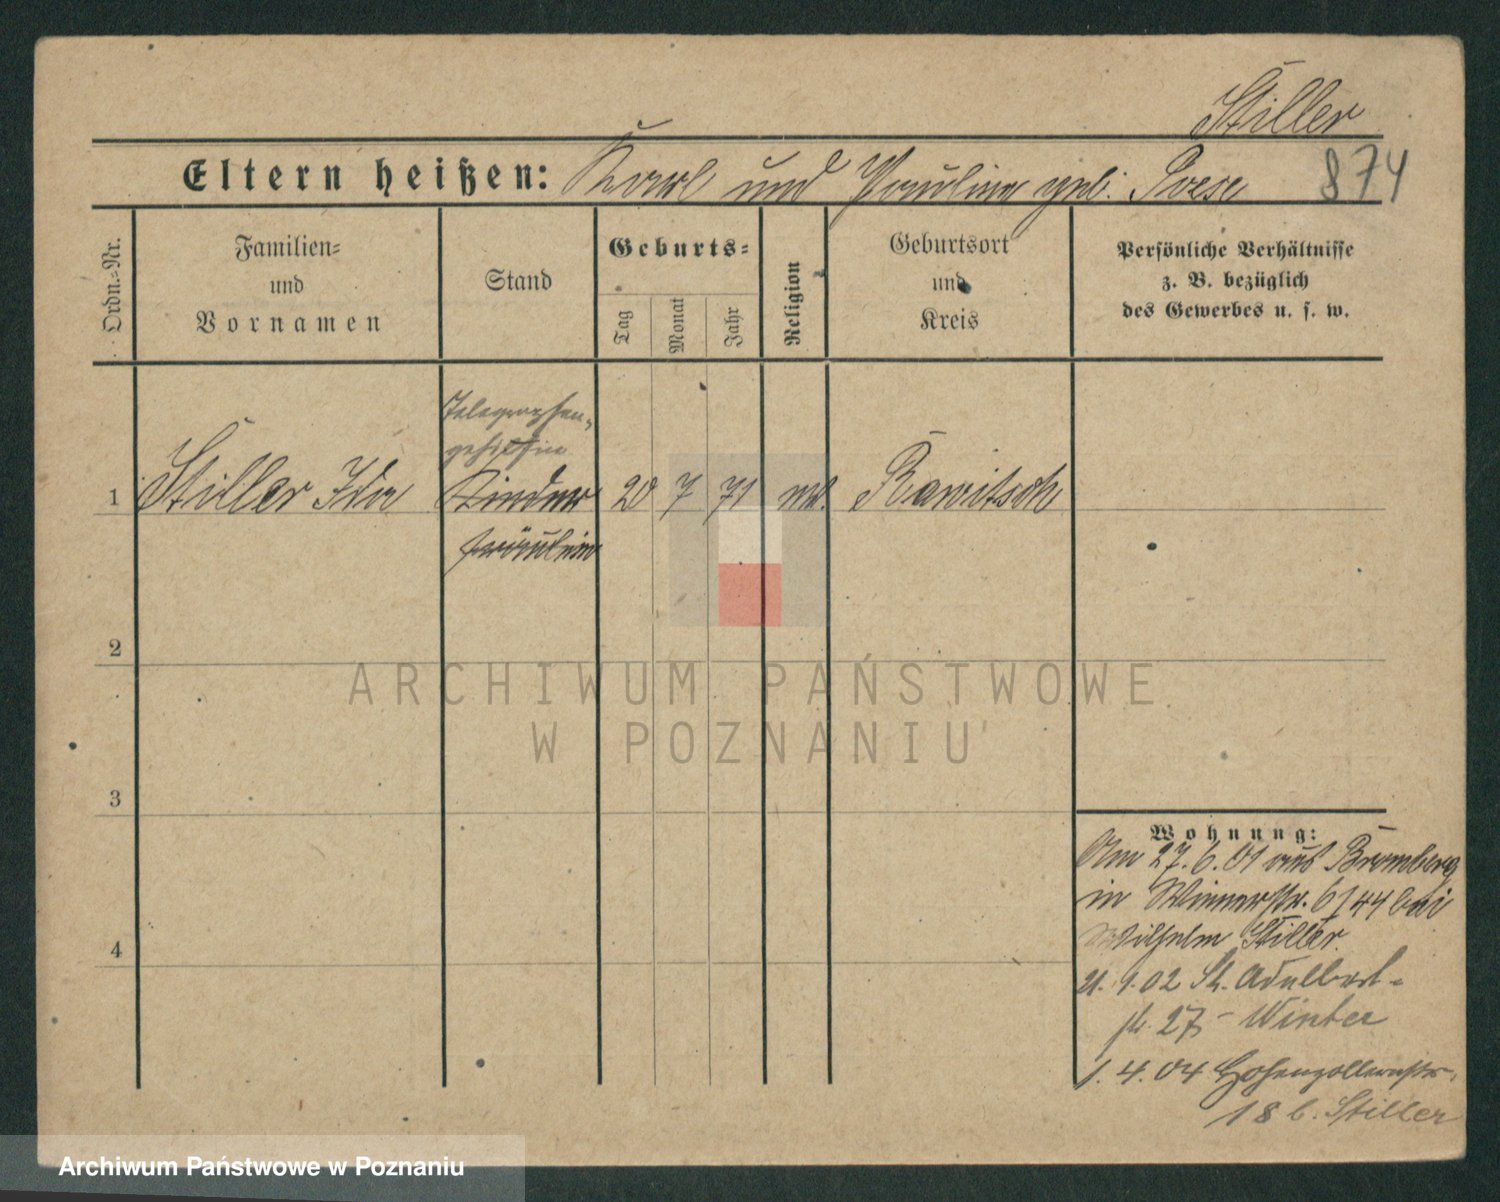 Stiller
Eltern heißen: Karl und Pauline geb. Poese
874
Ordn.-Nr.
Familien-
und
Vornamen
Stand
Geburts-
Tag
Monat
Jahr
Religion
Geburtsort
und
Kreis
Persönliche Verhältnisse
z. B. bezüglich
des Gewerbes u. s. w.
Telegraphen-
gehilfin
1 Stiller Ida Kinder 20 7 71 Rawitsch
fräulein
2
3
4
ARCHIWUM PAŃSTWOWE
W POZNANIU
Wohnung:
Am 27.6.01 aus Bromberg
in Wienerstr. 6/44 bei
Wilhelm Stiller.
1.02 St. Adalbert-
str. 27 - Winter
1.4.04 Hohenzollernstr.
18 b. Stiller
Archiwum Państwowe w Poznaniu